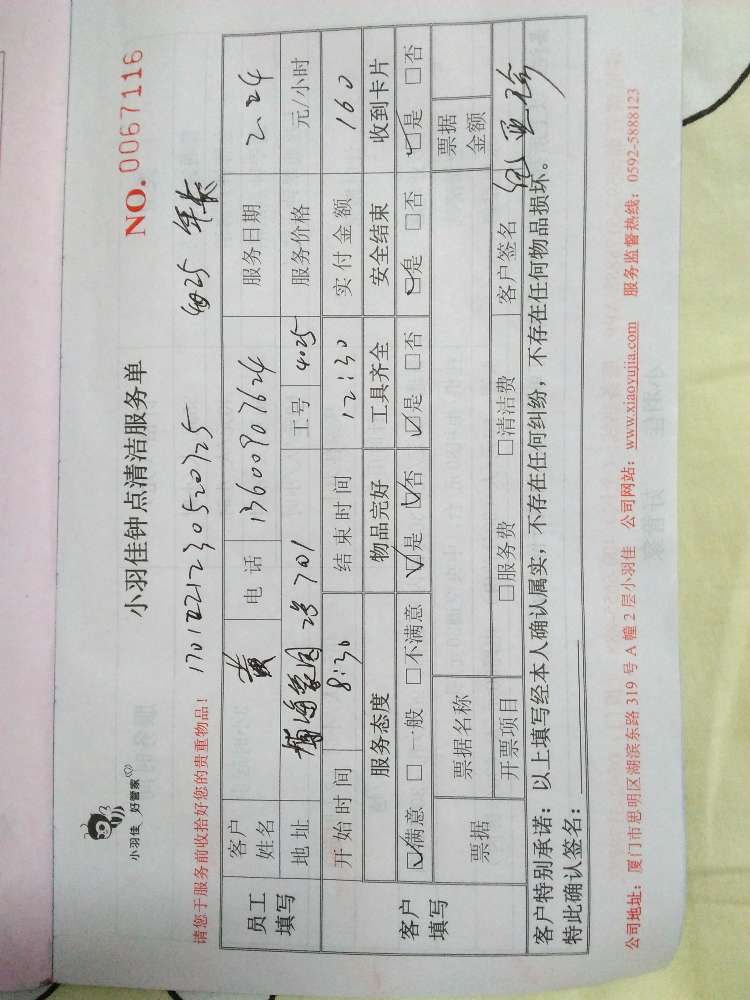 小羽佳 好管家
小羽佳钟点清洁服务单
NO. 0067116
请您于服务前收拾好您的贵重物品！
员工填写
客户姓名 黄 电话 13600907624 服务日期 2.24
地址 701 工号 4025 服务价格 元/小时
客户填写
开始时间 8:30 结束时间 12:30 实付金额 160
服务态度 物品完好 工具齐全 安全结束 收到卡片
☑满意 □一般 □不满意 ☑是 ☑否 ☑是 □否 ☑是 □否 ☑是 □否
票据 票据名称 票据金额
开票项目 □服务费 □清洁费 客户签名
客户特别承诺：以上填写经本人确认属实，不存在任何纠纷，不存在任何物品损坏。
特此确认签名：
公司地址：厦门市思明区湖滨东路 319 号 A 幢 2 层小羽佳 公司网站：www.xiaoyujia.com 服务监督热线：0592-5888123